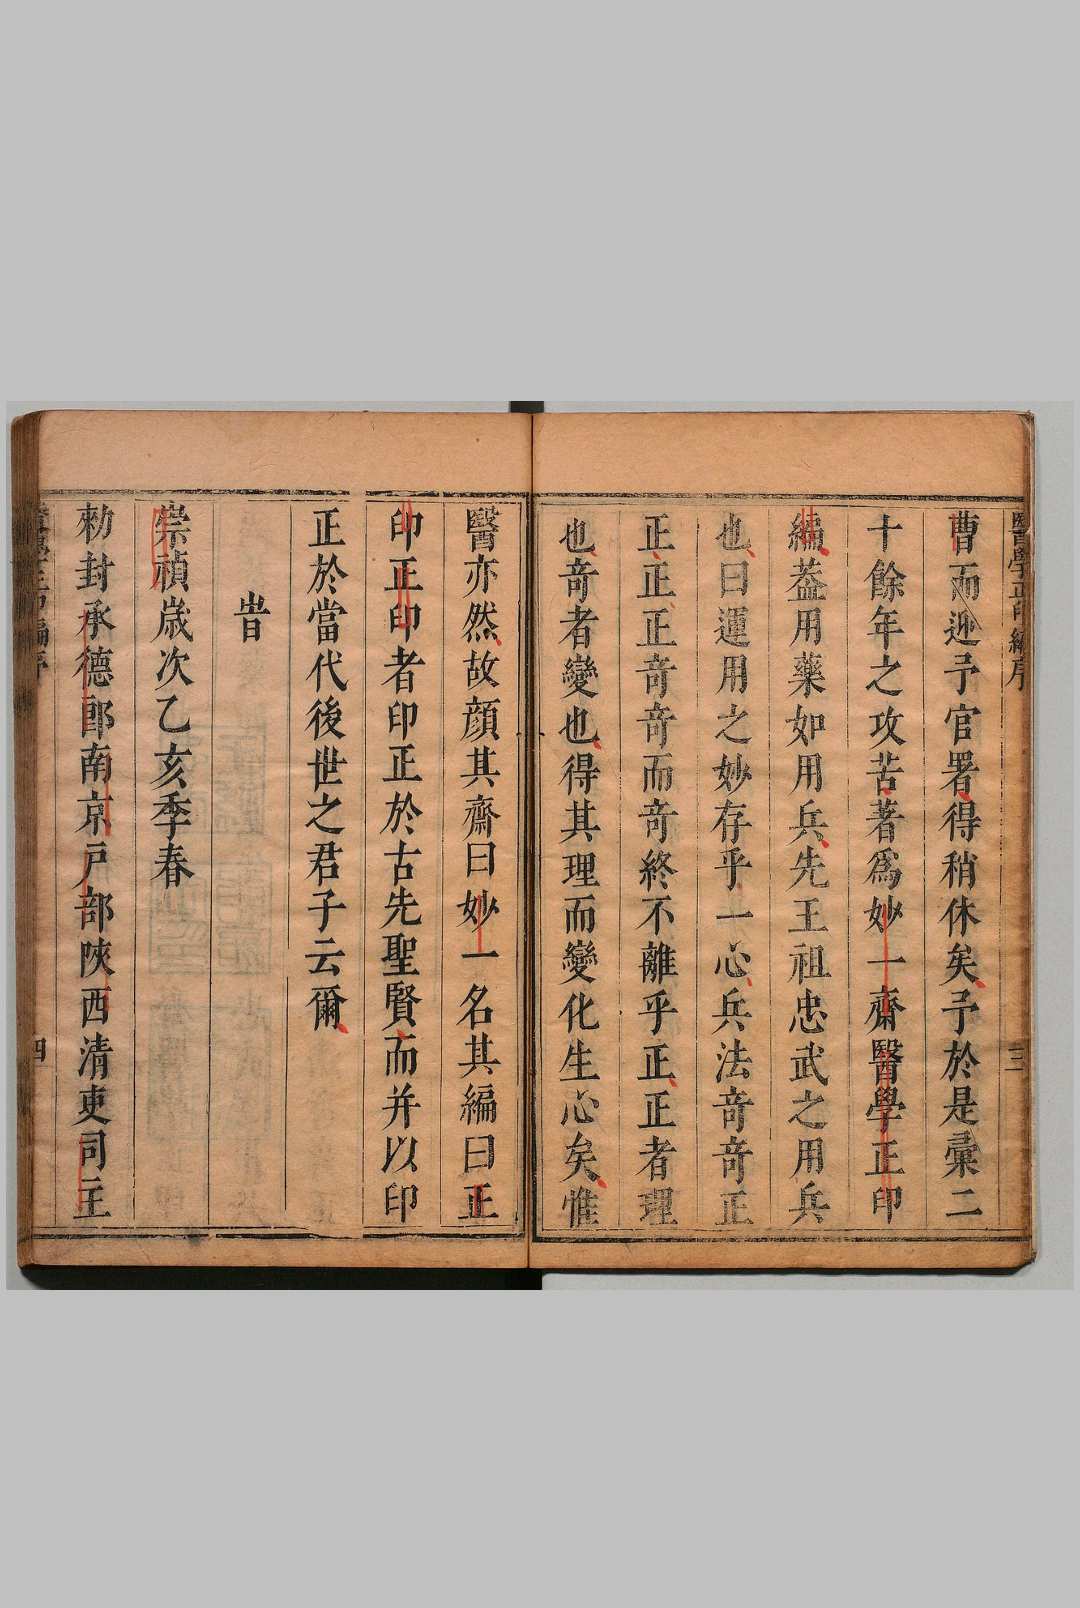 醫學正印編序
三
曹而迎予官署得稍休矣予於是彙二
十餘年之攻苦著爲妙一齋醫學正印
編葢用藥如用兵先王祖忠武之用兵
也曰運用之妙存乎一心兵法竒竒正
正正正竒竒而竒終不離乎正正者理
也竒者變也得其理而變化生心矣惟
醫亦然故顔其齋曰妙一名其編曰正
印正印者印正於古先聖賢而并以印
正於當代後世之君子云爾
旹
崇禎歲次乙亥季春
勑封承德郎南京戸部陝西清吏司主
醫學正印編序
四